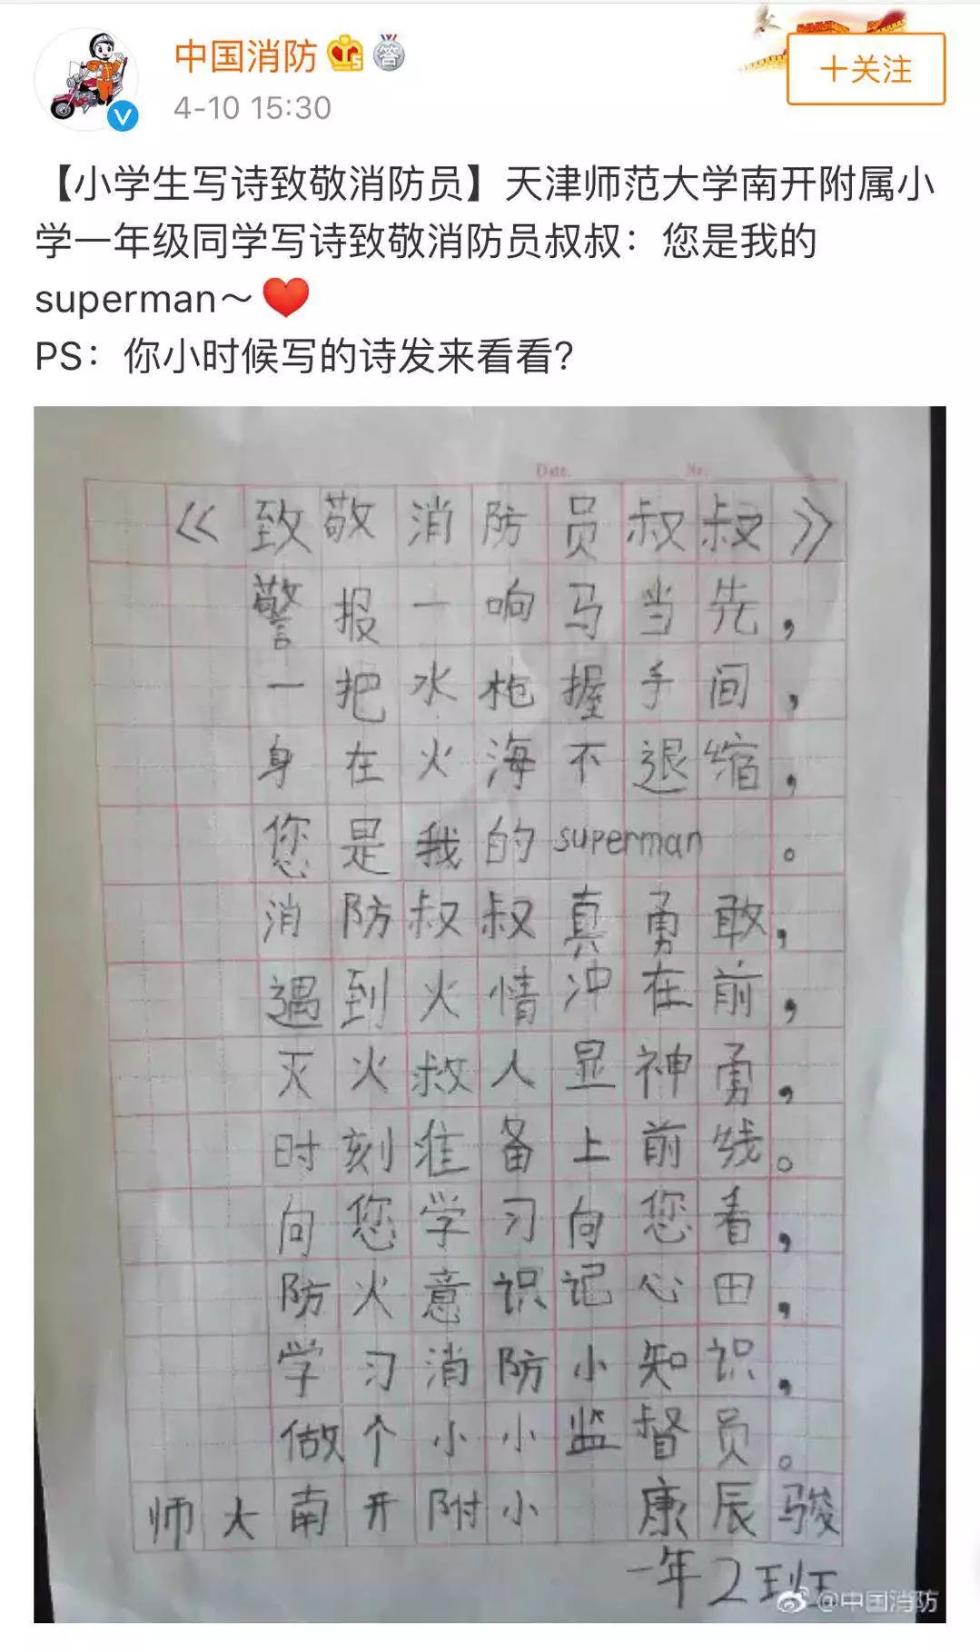 中国消防
4-10 15:30
十关注
【小学生写诗致敬消防员】天津师范大学南开附属小
学一年级同学写诗致敬消防员叔叔：您是我的
superman～❤️
PS：你小时候写的诗发来看看？
Date. No.
《致敬消防员叔叔》
警报一响马当先，
一把水枪握手间，
身在火海不退缩，
您是我的superman。
消防叔叔真勇敢，
遇到火情冲在前，
灭火救人显神勇，
时刻准备上前线。
向您学习向您看，
防火意识记心田，
学习消防小知识，
做个小小监督员。
师大南开附小 康辰骏
一年2班
@中国消防